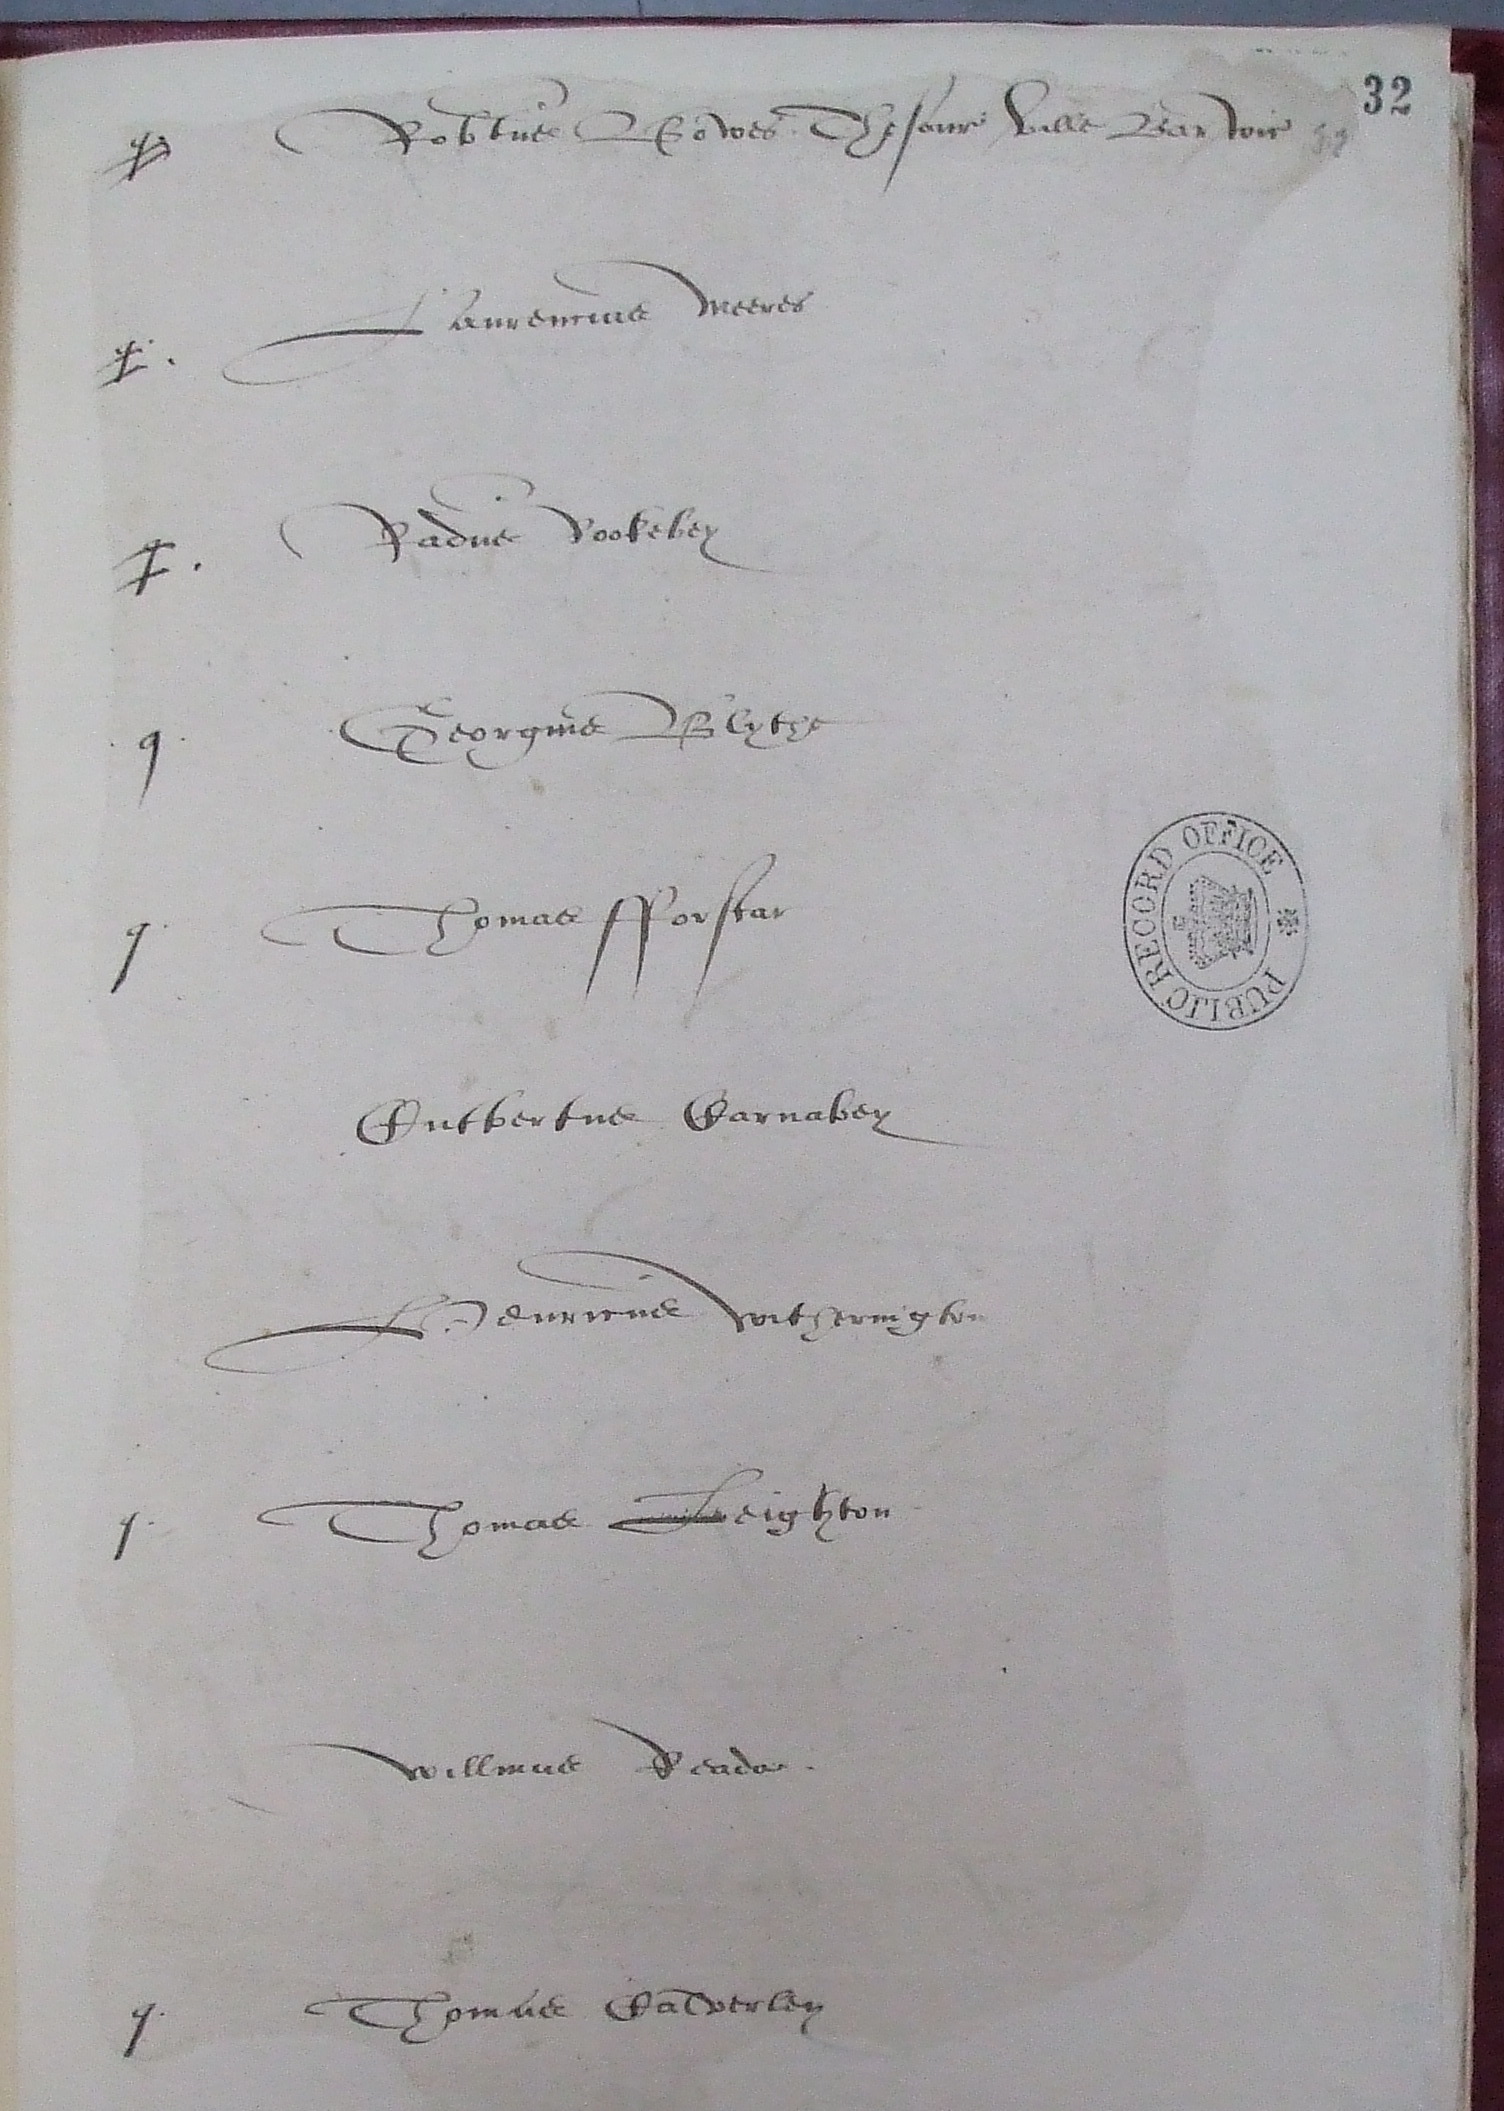 32
q Robtus Bowes Thesaur ville Barwic
q. Laurencius Meeres
q. Radus Rookebey
q Georgius Blythe
q Thomas fforstar
Cutbertus Carnabey
Henricus Witherington
q Thomas Leighton
Willmus Reade
q Thomas Calverley
PUBLIC RECORD OFFICE